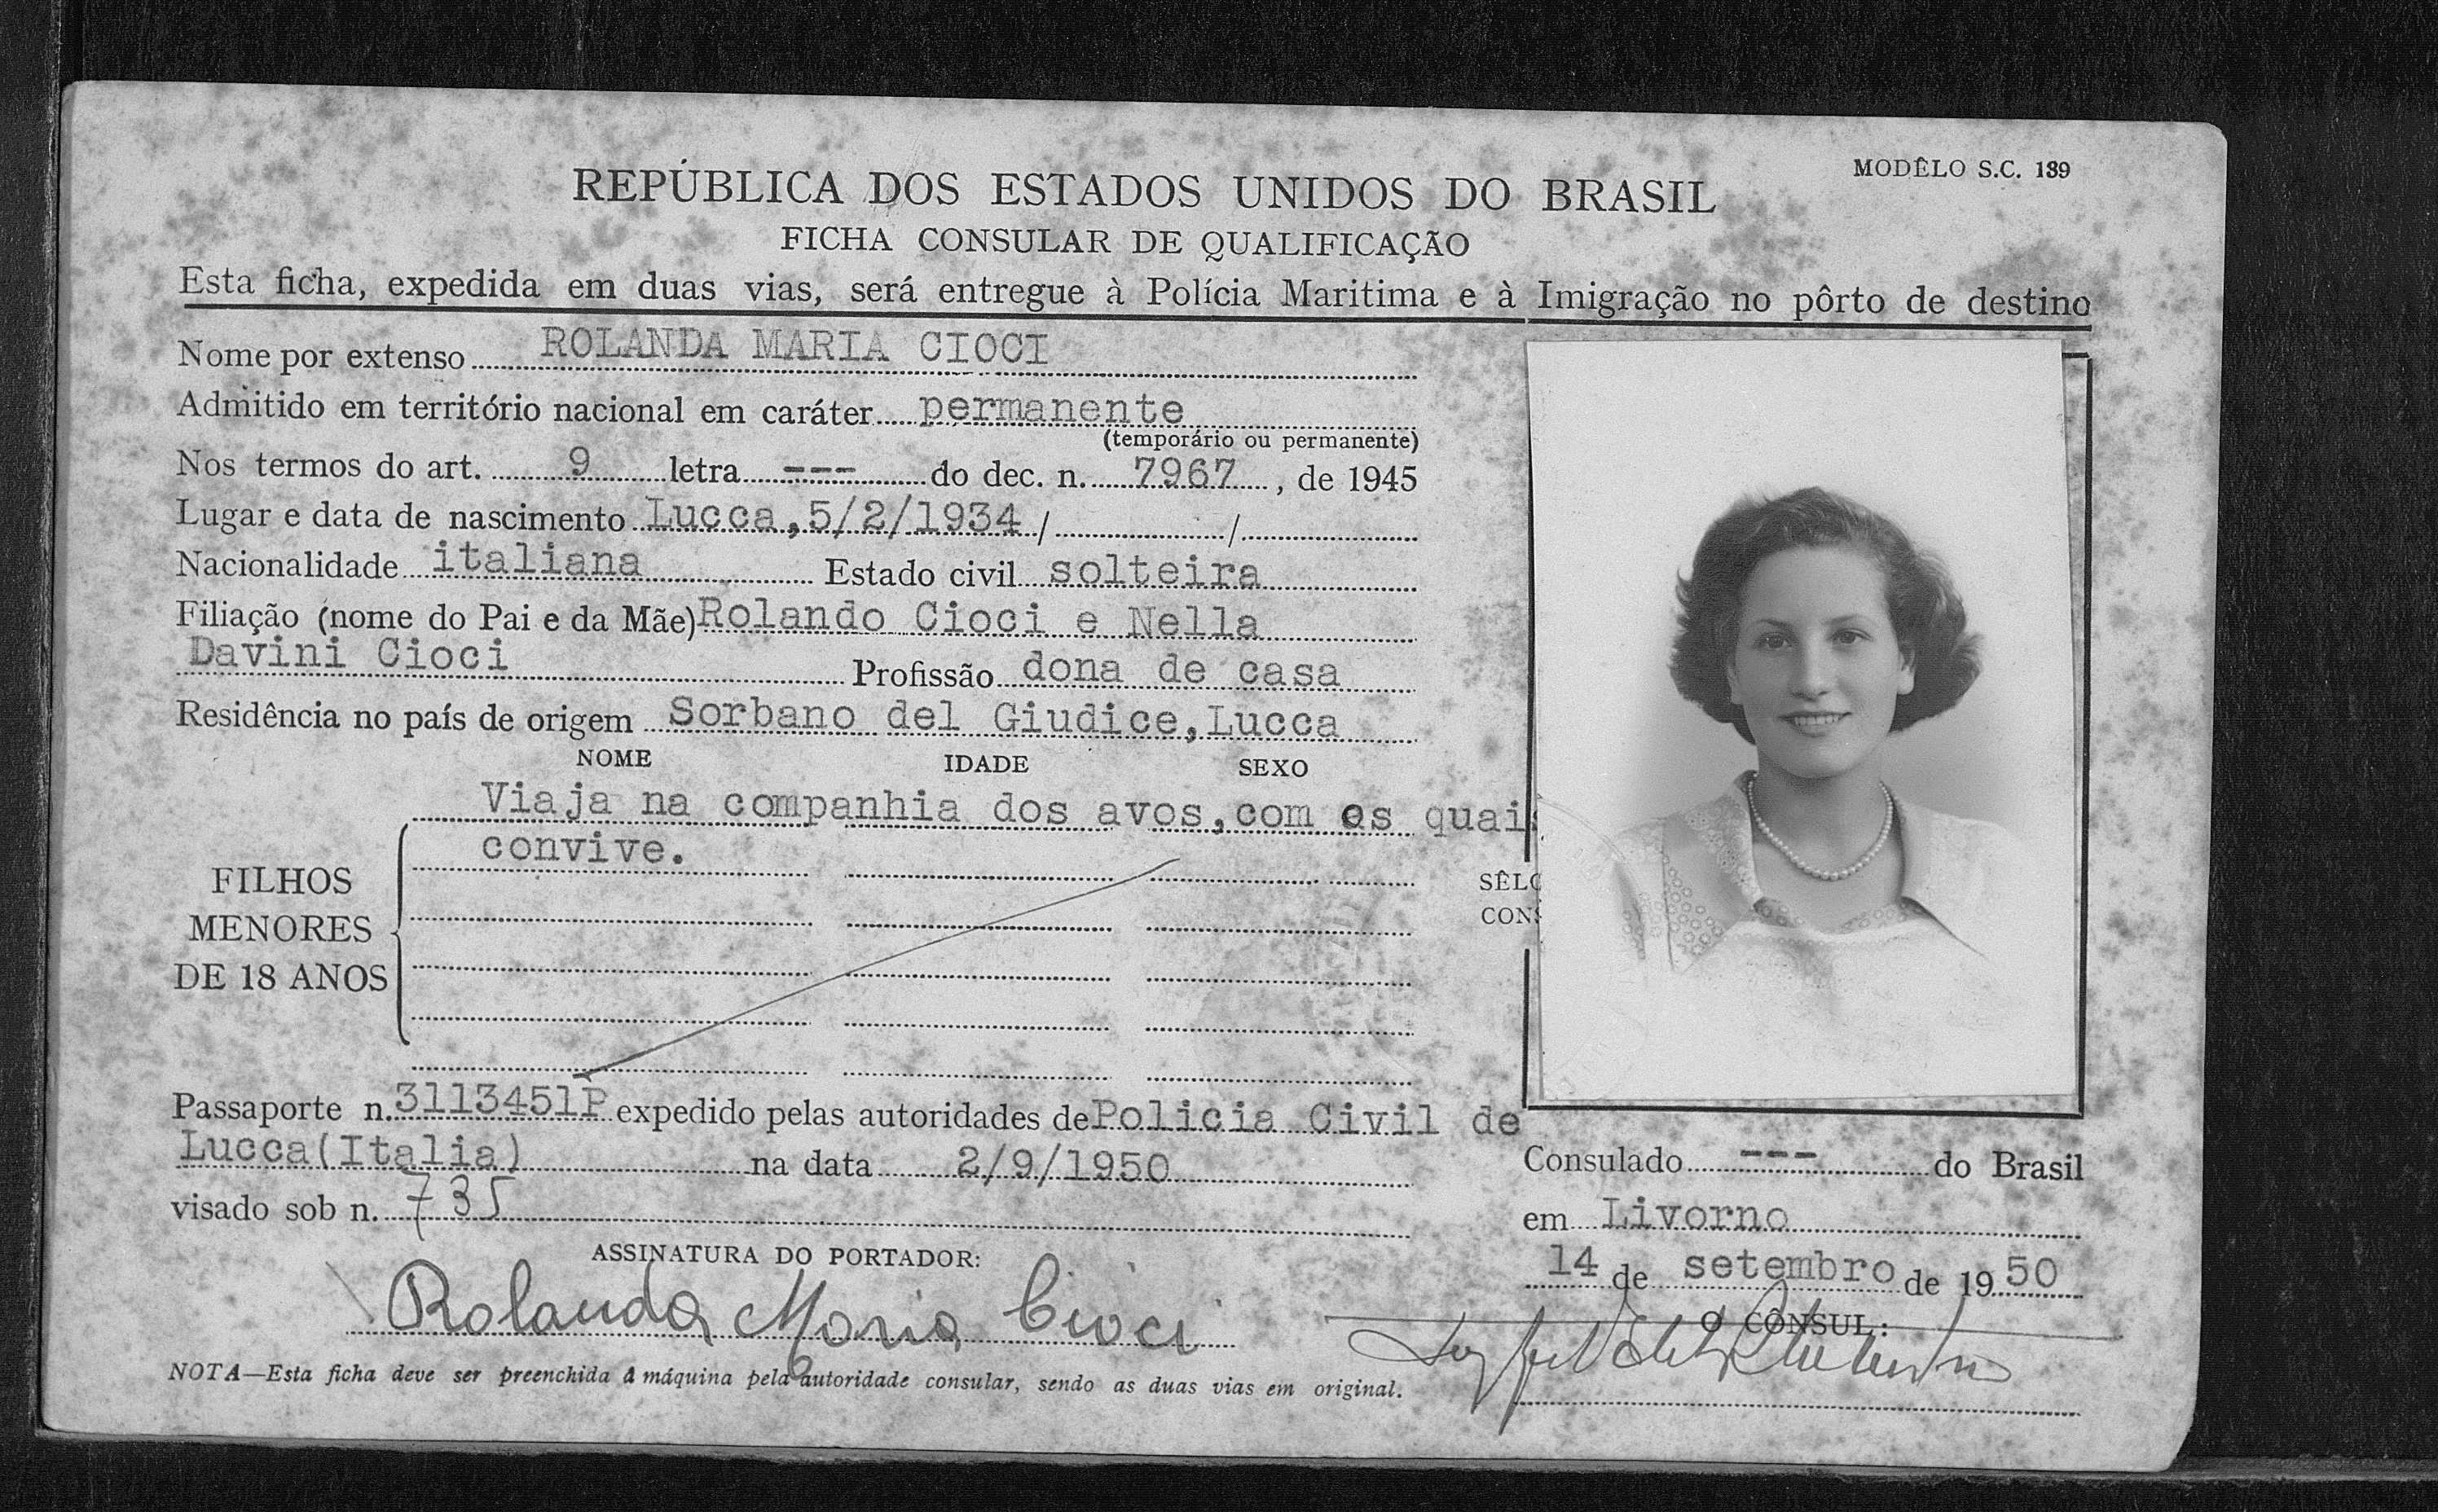 MODÊLO S.C. 139
REPÚBLICA DOS ESTADOS UNIDOS DO BRASIL
FICHA CONSULAR DE QUALIFICAÇÃO
Esta ficha, expedida em duas vias, será entregue à Polícia Maritima e à Imigração no pôrto de destino
Nome por extenso ROLANDA MARIA CIOCI
Admitido em território nacional em caráter permanente
(temporário ou permanente)
Nos termos do art. 9 letra --- do dec. n. 7967, de 1945
Lugar e data de nascimento Lucca,5/2/1934 / /
Nacionalidade italiana Estado civil solteira
Filiação (nome do Pai e da Mãe) Rolando Cioci e Nella
Davini Cioci Profissão dona de casa
Residência no país de origem Sorbano del Giudice,Lucca
NOME IDADE SEXO
Viaja na companhia dos avos,com os quais
convive.
FILHOS
MENORES
DE 18 ANOS
SÊLO
CONS
Passaporte n. 3113451P expedido pelas autoridades de Policia Civil de
Lucca(Italia) na data 2/9/1950
visado sob n. 735
Consulado --- do Brasil
em Livorno
14 de setembro de 1950
O CÔNSUL:
ASSINATURA DO PORTADOR:
Rolanda Maria Cioci
NOTA—Esta ficha deve ser preenchida à máquina pela autoridade consular, sendo as duas vias em original.